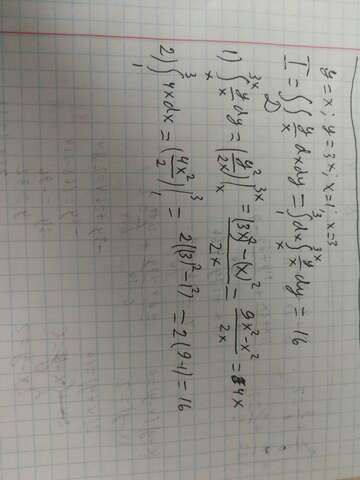 y=x; y=3x; x=1; x=3
I = ∫∫_D y/x dxdy = ∫_1^3 dx ∫_x^{3x} y/x dy = 16
1) ∫_x^{3x} y/x dy = (y²/2x)|_x^{3x} = ((3x)²-(x)²)/2x = (9x²-x²)/2x = 4x
2) ∫_1^3 4xdx = (4x²/2)|_1^3 = 2((3)²-1²) = 2(9-1) = 16